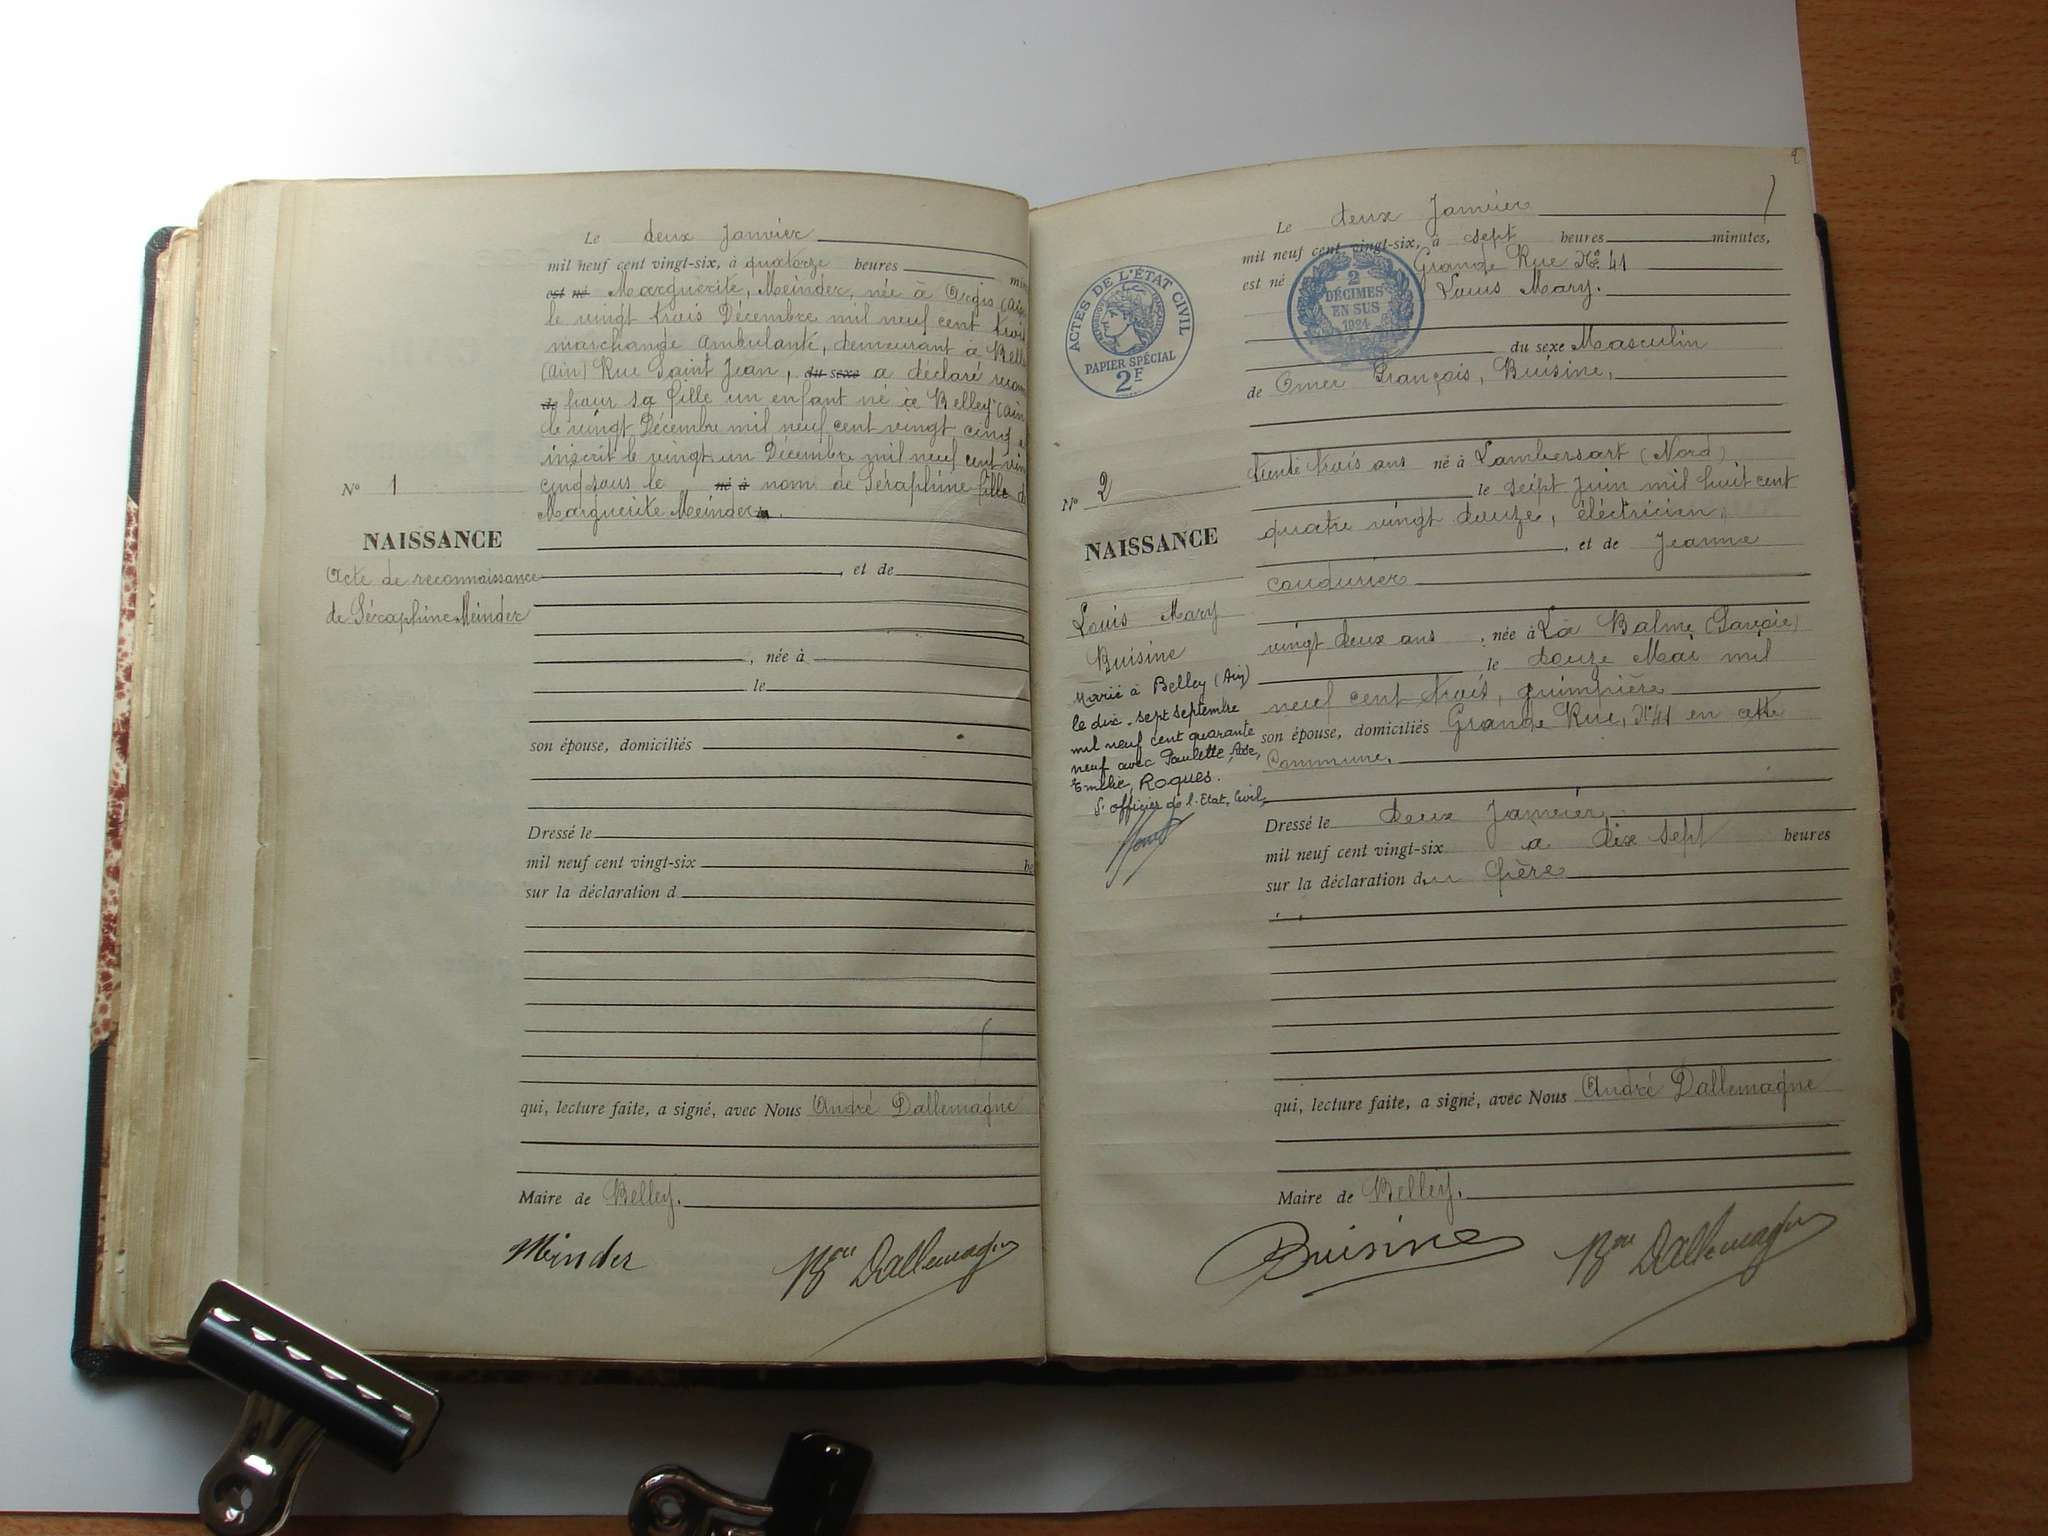 Le deux Janvier
mil neuf cent vingt-six, à quatorze heures
est né Marguerite, Meinder, née à Argis (Ain
le vingt trois Décembre mil neuf cent trois
marchande ambulante, demeurant à Belle
(Ain) Rue Saint Jean, du sexe a déclaré recon
de pour sa fille un enfant né à Belley (Ain
le vingt Décembre mil neuf cent vingt cinq
inscrit le vingt un Décembre mil neuf cent vin
cinq sous le né à nom de Séraphine fille de
Marguerite Meinder.
N° 1
NAISSANCE
Acte de reconnaissance
de Séraphine Meinder
, et de
, née à
le
son épouse, domiciliés
Dressé le
mil neuf cent vingt-six he
sur la déclaration d
qui, lecture faite, a signé, avec Nous André Dallemagne
Maire de Belley.
Minder Bon Dallemagne
2
Le deux Janvier
mil neuf cent vingt-six, à sept heures minutes,
est né Grande Rue N° 41
Louis Mary.
du sexe Masculin
de Omer François, Buisine,
trente trois ans né à Lambersart (Nord)
le sept Juin mil huit cent
quatre vingt douze, électricien,
, et de Jeanne
Coudurier
vingt deux ans , née à La Balme (Savoie)
le douze Mai mil
neuf cent trois, guimpière
son épouse, domiciliés Grande Rue, N° 41 en cette
Commune.
Dressé le deux Janvier
mil neuf cent vingt-six à dix sept heures
sur la déclaration du Père
qui, lecture faite, a signé, avec Nous André Dallemagne
Maire de Belley.
Buisine Bon Dallemagne
ACTES DE L'ÉTAT CIVIL
PAPIER SPÉCIAL
2F
2
DÉCIMES
EN SUS
1924
N° 2
NAISSANCE
Louis Mary
Buisine
Marié à Belley (Ain)
le dix-sept septembre
mil neuf cent quarante
neuf avec Paulette, Rose,
Emélie, Roques.
L'officier de l'Etat-Civil,